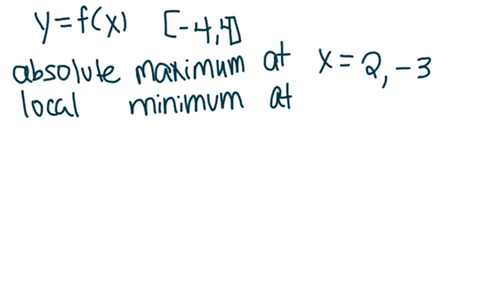 y=f(x) [-4,4]
absolute maximum at x=2,-3
local minimum at